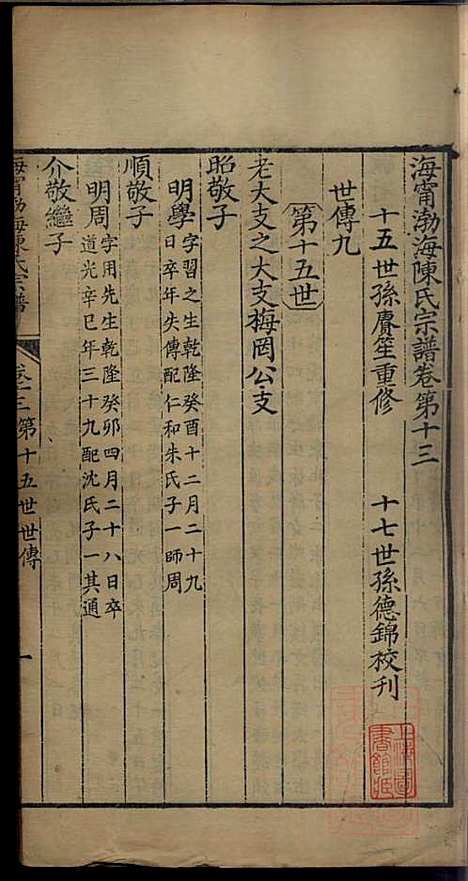 海甯渤海陳氏宗譜卷第十三
十五世孫賡笙重修　十七世孫德錦校刊
世傳九
第十五世
老大支之大支梅岡公支
昭敬子
明學字習之生乾隆癸酉十二月二十九
日卒年失傳配仁和朱氏子一師周
順敬子
明周字用先生乾隆癸卯四月二十八日卒
道光辛巳年三十九配沈氏子一其通
介敬繼子
海甯渤海陳氏宗譜　卷十三第十五世世傳　一
上海圖書館藏